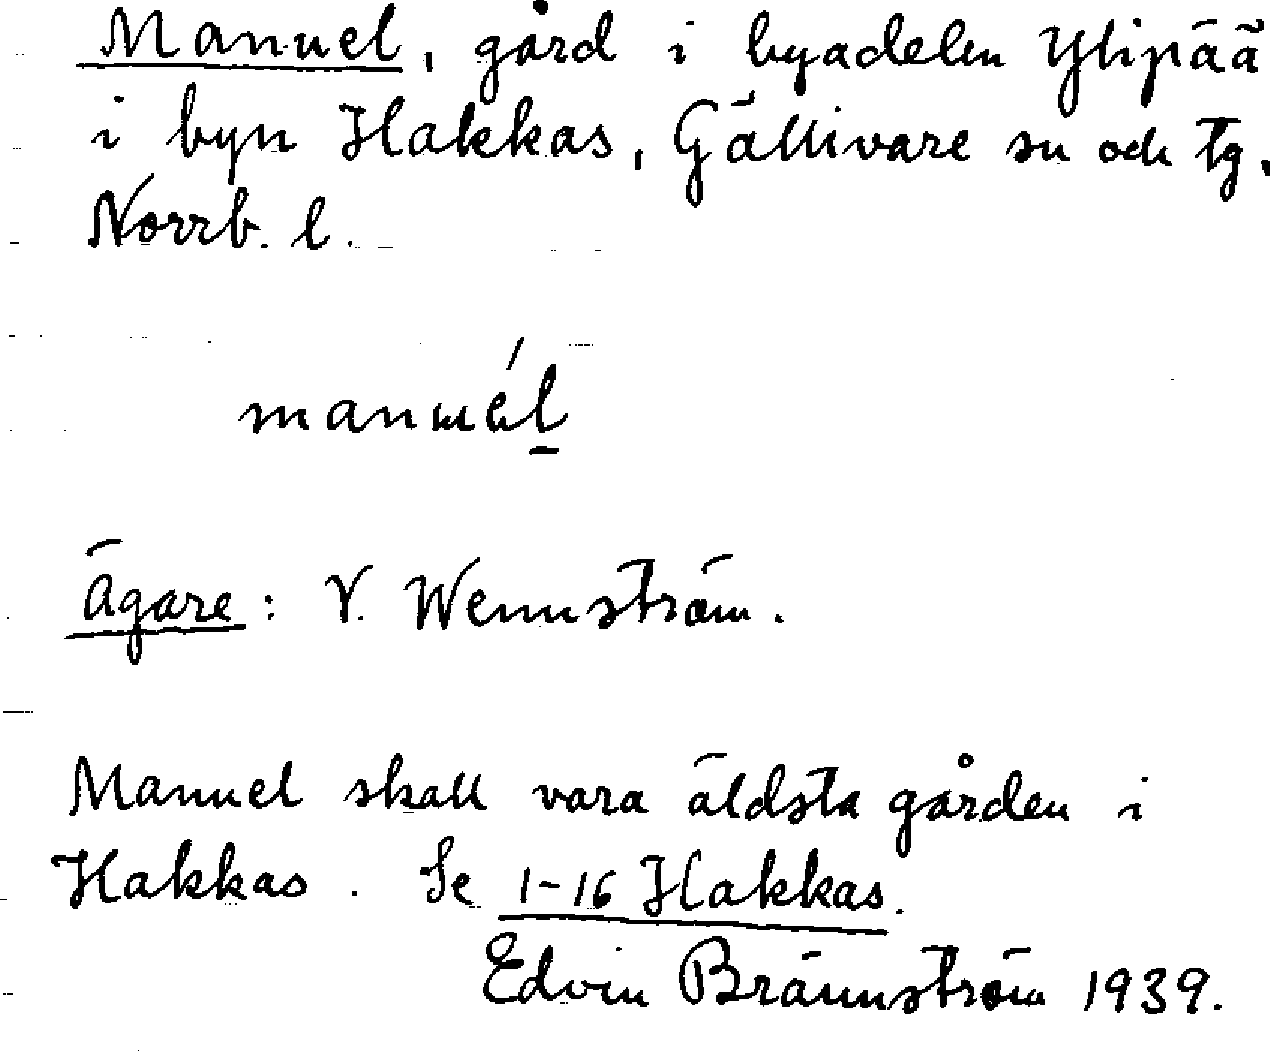 Manuel, gård i byadelen Ylipää
i byn Hakkas, Gällivare sn och tg,
Norrb. l.
manuél
Ägare: V. Wennström.
Manuel skall vara äldsta gården i
Hakkas. Se 1-16 Hakkas.
Edvin Brännström 1939.